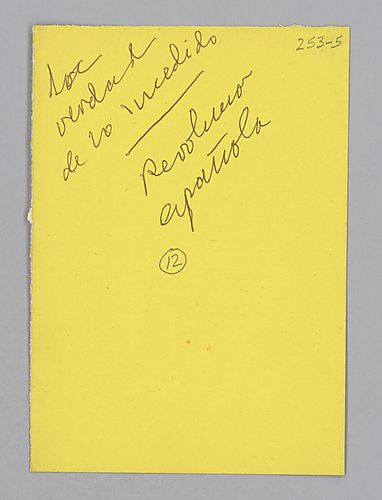 253-5
la
verdad
de lo sucedido
Revolucion
española
12